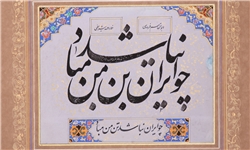 چو ایران نباشد تن من مباد
چو ایران نباشد تن من مباد